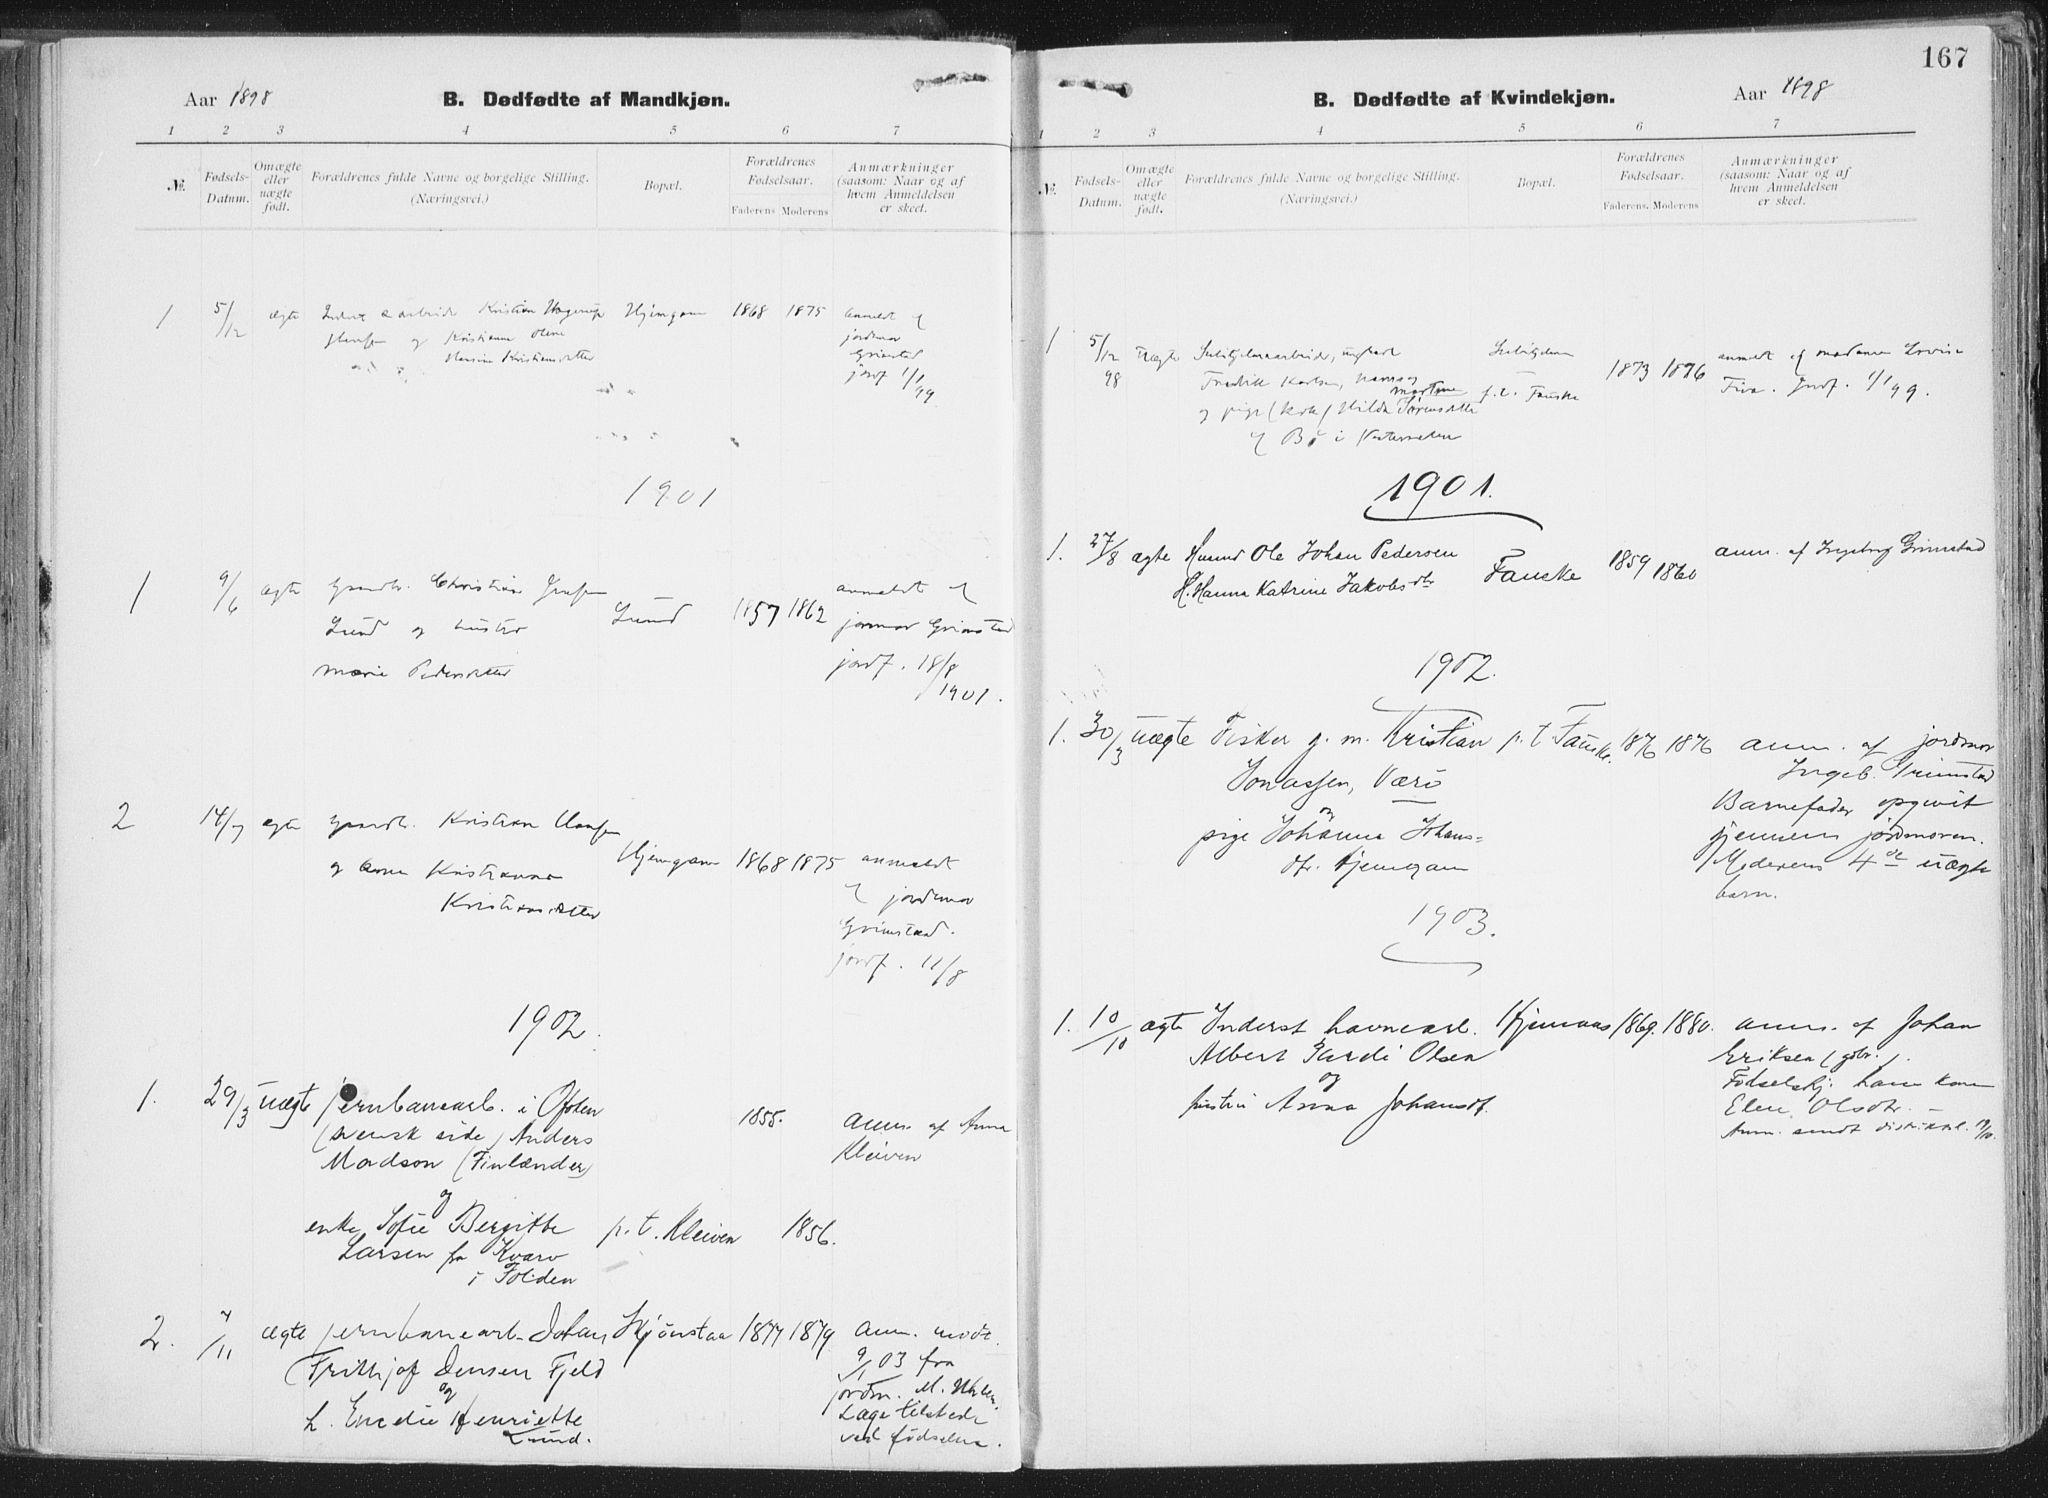 Aar 1898
B. Dødfødte af Mandkjøn.
1 2 3 4 5 6 7
№.
Fødsels-Datum.
Omægte eller uægte født.
Forældrenes fulde Navne og borgelige Stilling.
(Næringsvei.)
Bopæl.
Forældrenes Fødselsaar.
Faderens Moderens
Anmærkninger
(saasom: Naar og af
hvem Anmeldelsen
er skeet.
1 5/12 ægte Kristian Hagerup Hjemgam 1868 1875 anmeldt af
og Kristianna Oline jordmor
Hansine Kristiansdatter Grimstad
jordf 1/1
99
1901
1 9/6 ægte Gaardbr. Christian Jensen Lund 1857 1862 anmeldt af
Lund og hustru jormor Grimstad
Marie Pedersdatter jordf. 18/8
1901.
2 14/7 ægte Gaardbr. Kristian Hansen Hjemgam 1868 1875 anmeldt
og Kristianna af jordmor
Kristiansdatter Grimstad.
jordf. 11/8
1902.
1. 29/3 uægte jernbanearb. i Ofoten 1855. anm. af Anna
(svensk side) Anders Kleiven
Madson (Finlænder)
og
enke Sofie Bergitte p. t. Kleiven 1856.
Larsen fra Kvarv
i Folden
2. 7/11 ægte jernbanearb. Johan Skjønstaa 1877 1879 Anm. modt.
Frithjof Jensen Fjeld 9/1 03 fra
og jordm. M.
h. Emelie Henriette Læge tilstede
Lund. ved fødselen.
167
B. Dødfødte af Kvindekjøn.
Aar 1898
1 2 3 4 5 6 7
№.
Fødsels-Datum.
Omægte eller uægte født.
Forældrenes fulde Navne og borgelige Stilling.
(Næringsvei.)
Bopæl.
Forældrenes Fødselsaar.
Faderens. Moderens
Anmærkninger
(saasom: Naar og af
hvem Anmeldelsen
er skeet.
1 5/12 98 uægte Sulitjelmaarbeider, ungkarl Sulitjelma 1873 1876 anmeldt af madame Lovise
Fredrik Karlsen, p. t. Fauske jordf. 1/1 99.
og pige Hilda Martine Sørensdatter
af Bø i Vesteraalen
1901.
1. 27/8 ægte Husmd Ole Johan Pedersen Fauske 1859 1860 anm. af Ingeborg Grimstad
H. Hanna Katrine Jakobsdtr
1902.
1. 30/3 uægte Fisker g. m. Kristian p. t. Fauske. 1876 1876 anm. af jordmor
Jonassen, Værø Ingeb. Grimstad
og Barnefader opgivit
pige Johanna Johans= gjennem jordmoren.
dtr. Hjemgam Moderens 4de uægte
barn.
1903.
1. 10/10 ægte Inderst havnearb. Hjemaas 1869. 1880. anm. af Johan
Albert Olsen Eriksen (gbr.).
og Fødselshj. hans kone
hustru Anna Johansdt. Elen Olsdtr. —
Anm. sendt